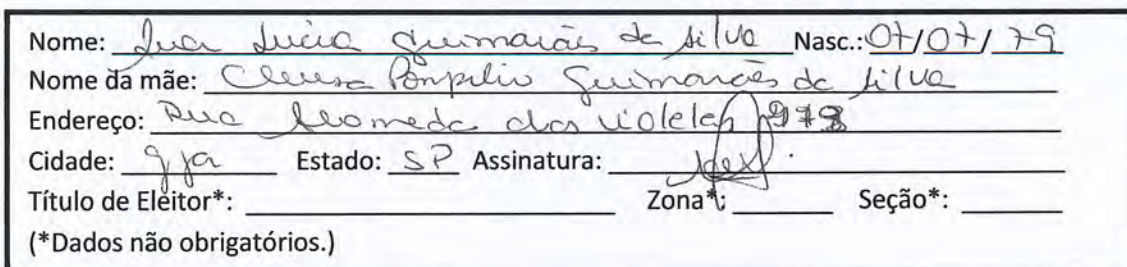 Nome: Ana Lucia Guimarães da Silva Nasc.: 07/07/79
Nome da mãe: Cleusa Pompilio Guimarães da Silva
Endereço: Rua Alameda das violetas 973
Cidade: gja Estado: SP Assinatura:
Título de Eleitor*: Zona*: Seção*:
(*Dados não obrigatórios.)